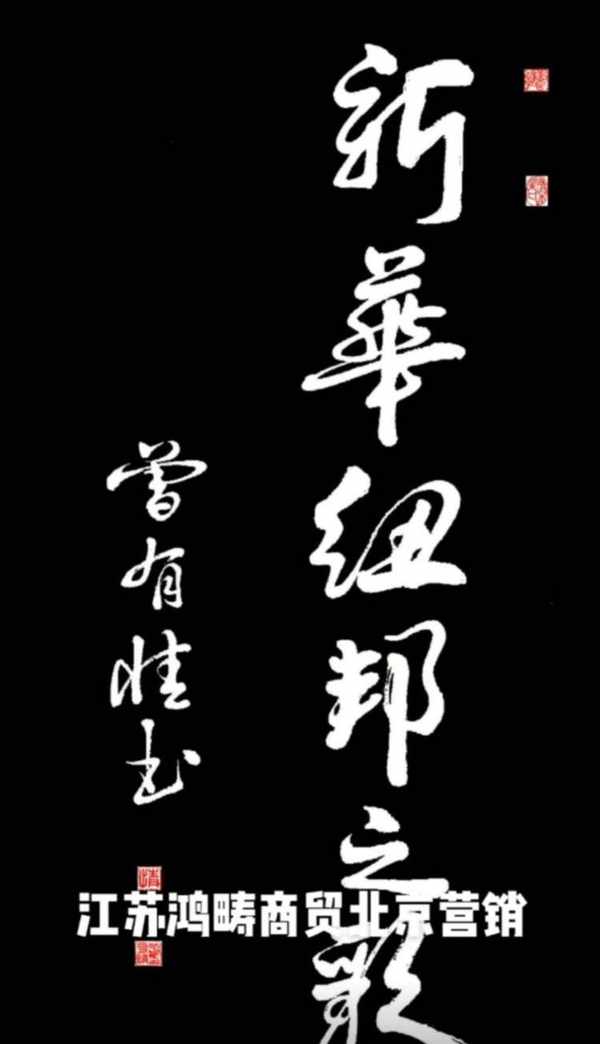 新華纽邦之歌
曾有情书
江苏鸿畴商贸北京营销